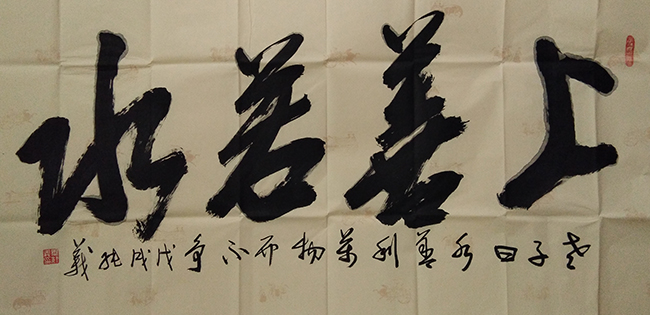 上善若水
老子曰水善利萬物而不争戊戌